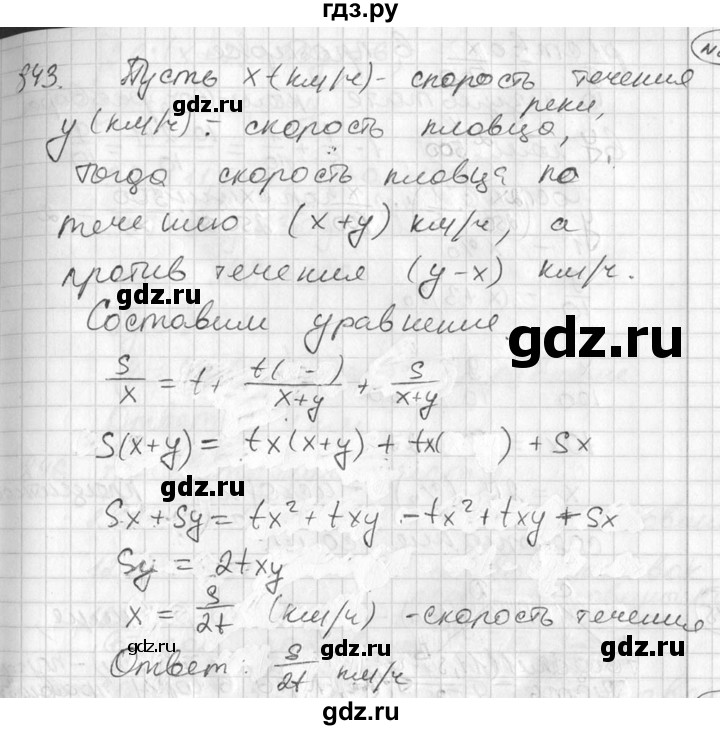 гдз.ру
343. Пусть x (км/ч) - скорость течения
реки,
y (км/ч) - скорость пловца,
тогда скорость пловца по
течению (x+y) км/ч, а
против течения (y-x) км/ч.
Составим уравнение
S/x = t + t( - )/(x+y) + S/(x+y)
S(x+y) = tx(x+y) + tx( ) + Sx
Sx + Sy = tx² + txy - tx² + txy + Sx
Sy = 2txy
x = S/2t (км/ч) - скорость течения
Ответ: S/2t км/ч
gdz.ru
gdz.ru
gdz.ru
gdz.ru
gdz.ru
gdz.ru
gdz.ru
gdz.ru
gdz.ru